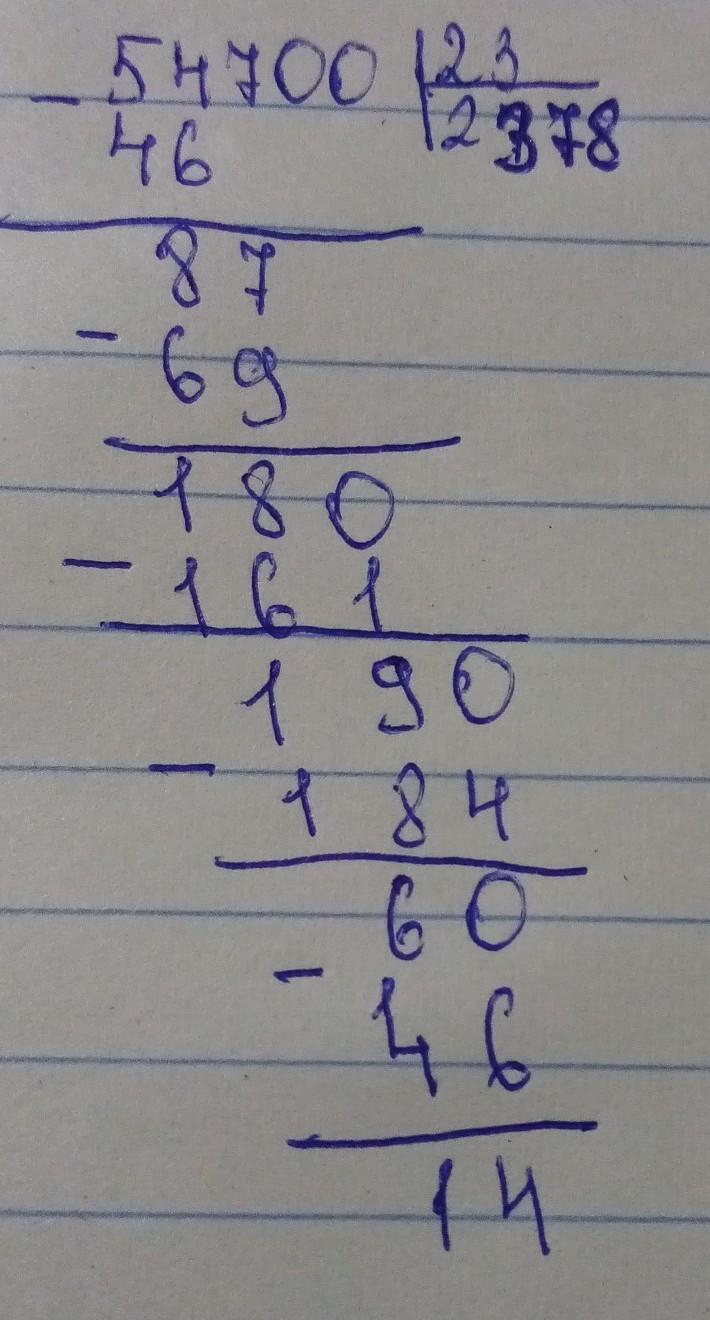 - 54700 23
46 2378
87
- 69
180
- 161
190
- 184
60
- 46
14